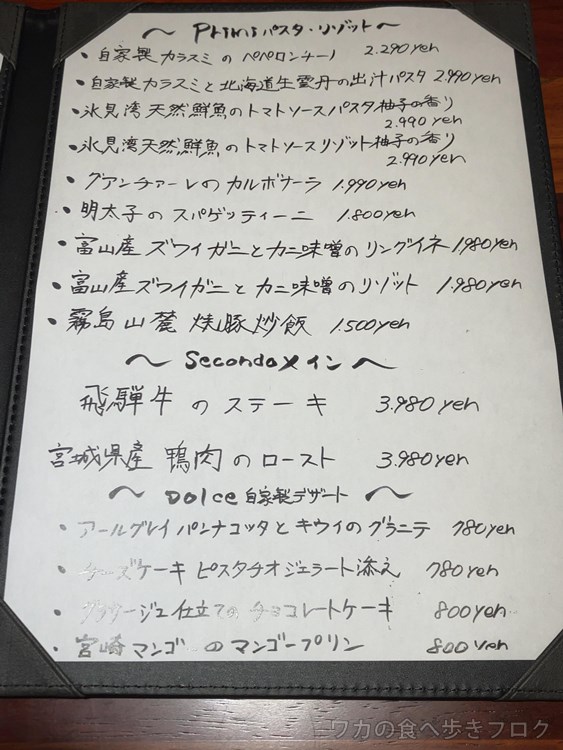 ～ Primi パスタ・リゾット ～
・自家製カラスミのペペロンチーノ 2.290yen
・自家製カラスミと北海道生雲丹の出汁パスタ 2.990yen
・氷見湾天然鮮魚のトマトソースパスタ柚子の香り
2.990 yen
・氷見湾天然鮮魚のトマトソースリゾット柚子の香り
2.990yen
・グアンチャーレのカルボナーラ 1.990yen
・明太子のスパゲッティーニ 1.800yen
・富山産ズワイガニとカニ味噌のリングイネ 1.980yen
・富山産ズワイガニとカニ味噌のリゾット 1.980yen
・霧島山麓 焼豚炒飯 1.500yen
～ Secondo メイン ～
飛騨牛のステーキ 3.980yen
宮城県産 鴨肉のロースト 3.980yen
～ Dolce 自家製デザート ～
・アールグレイパンナコッタとキウイのグラニテ 780yen
・チーズケーキ ピスタチオジェラート添え 780yen
・仕立てのチョコレートケーキ 800yen
・宮崎マンゴーのマンゴープリン 800yen
ワカの食べ歩きブログ